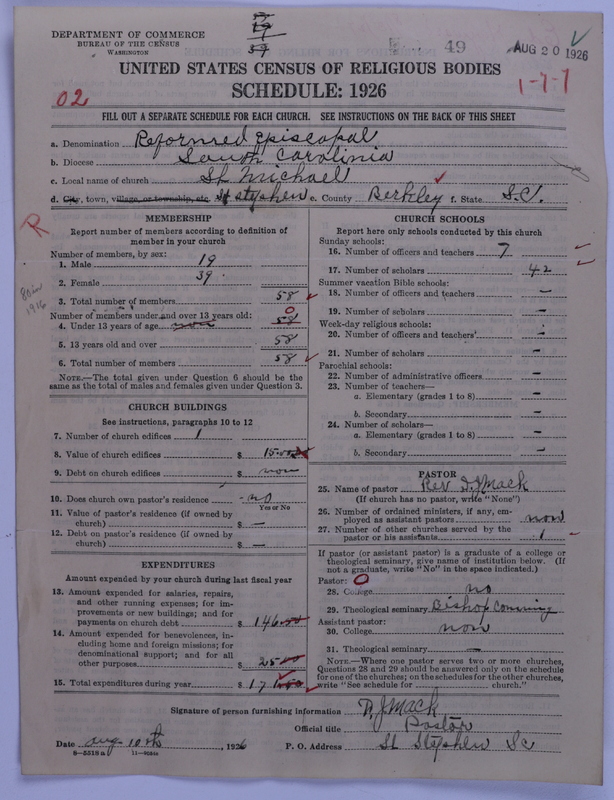 DEPARTMENT OF COMMERCE
BUREAU OF THE CENSUS
WASHINGTON
49
AUG 20 1926
1-7-7
02
UNITED STATES CENSUS OF RELIGIOUS BODIES
SCHEDULE: 1926
FILL OUT A SEPARATE SCHEDULE FOR EACH CHURCH. SEE INSTRUCTIONS ON THE BACK OF THIS SHEET
a. Denomination Reformred Episcopal
b. Diocese South Carolinia
c. Local name of church St Michael
d. City, town, village, or township, etc. St Stephen e. County Berkley f. State S.C.
R
MEMBERSHIP
Report number of members according to definition of member in your church
Number of members, by sex:
1. Male 19
2. Female 39
3. Total number of members 58
Number of members under and over 13 years old:
4. Under 13 years of age 0
5. 13 years old and over 58
6. Total number of members 58
NOTE.—The total given under Question 6 should be the same as the total of males and females given under Question 3.
CHURCH BUILDINGS
See instructions, paragraphs 10 to 12
7. Number of church edifices 1
8. Value of church edifices $
9. Debt on church edifices $ non
10. Does church own pastor's residence no
Yes or No
11. Value of pastor's residence (if owned by church) $ —
12. Debt on pastor's residence (if owned by church) $ —
EXPENDITURES
Amount expended by your church during last fiscal year
13. Amount expended for salaries, repairs, and other running expenses; for improvements or new buildings; and for payments on church debt $ 146
14. Amount expended for benevolences, including home and foreign missions; for denominational support; and for all other purposes $ 25
15. Total expenditures during year $ 171
CHURCH SCHOOLS
Report here only schools conducted by this church
Sunday schools:
16. Number of officers and teachers 7
17. Number of scholars 42
Summer vacation Bible schools:
18. Number of officers and teachers —
19. Number of scholars —
Week-day religious schools:
20. Number of officers and teachers —
21. Number of scholars —
Parochial schools:
22. Number of administrative officers —
23. Number of teachers—
a. Elementary (grades 1 to 8) —
b. Secondary —
24. Number of scholars—
a. Elementary (grades 1 to 8) —
b. Secondary —
PASTOR
25. Name of pastor Rev D. J Mack
(If church has no pastor, write "None")
26. Number of ordained ministers, if any, employed as assistant pastors non
27. Number of other churches served by the pastor or his assistants 1
If pastor (or assistant pastor) is a graduate of a college or theological seminary, give name of institution below. (If not a graduate, write "No" in the space indicated.)
Pastor: 0
28. College no
29. Theological seminary Bishop
Assistant pastor:
30. College non
31. Theological seminary —
NOTE.—Where one pastor serves two or more churches, Questions 28 and 29 should be answered only on the schedule for one of the churches; on the schedules for the other churches, write "See schedule for church."
Signature of person furnishing information D. J Mack
Official title Pastor
Date Aug 10th, 1926 P. O. Address St Stephen Sc
8-2518a 11-